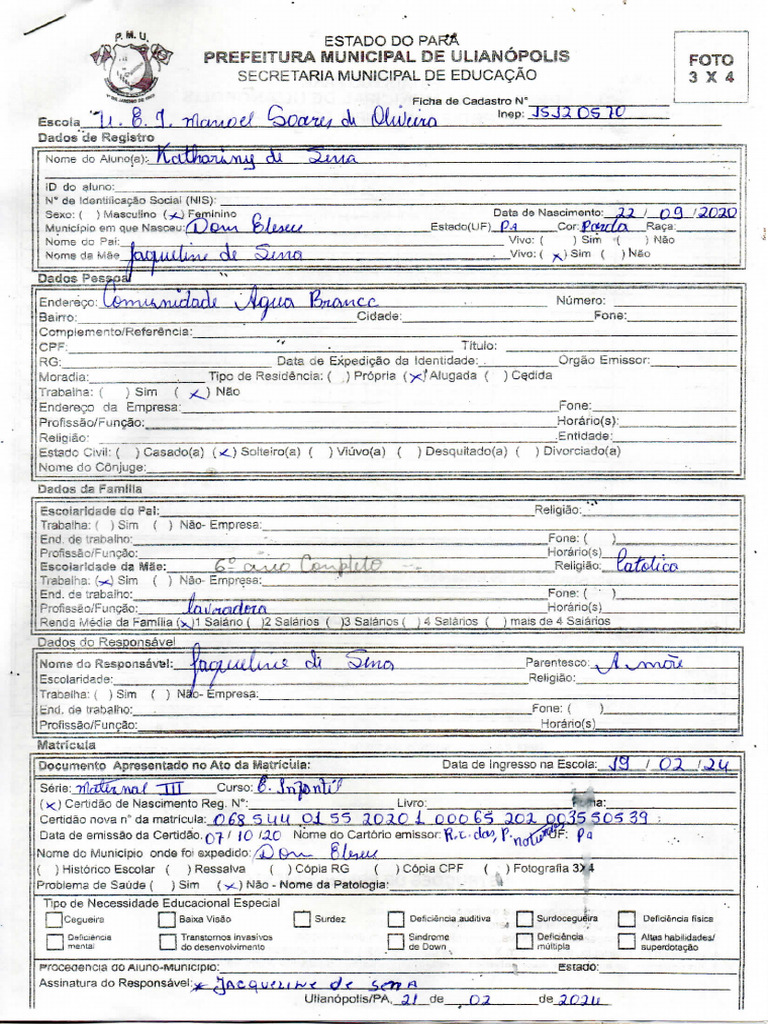 P. M. U.
ESTADO DO PARÁ
PREFEITURA MUNICIPAL DE ULIANÓPOLIS
SECRETARIA MUNICIPAL DE EDUCAÇÃO
FOTO
3 X 4
Ficha de Cadastro N°
Escola U. E. I. Manoel Soares de Oliveira Inep: 15120570
Dados de Registro
Nome do Aluno(a): Kathariny de Sena
ID do aluno:
N° de Identificação Social (NIS):
Sexo: ( ) Masculino (x) Feminino Data de Nascimento: 22 / 09 / 2020
Município em que Nasceu: Dom Eliseu Estado(UF) PA Cor: Parda Raça:
Nome do Pai: Vivo: ( ) Sim ( ) Não
Nome da Mãe Jaqueline de Sena Vivo: (x) Sim ( ) Não
Dados Pessoal
Endereço: Comunidade Agua Branca Número:
Bairro: Cidade: Fone:
Complemento/Referência:
CPF: Título:
RG: Data de Expedição da Identidade: Orgão Emissor:
Moradia: Tipo de Residência: ( ) Própria (x) Alugada ( ) Cedida
Trabalha: ( ) Sim (x) Não
Endereço da Empresa: Fone:
Profissão/Função: Horário(s):
Religião: Entidade:
Estado Civil: ( ) Casado(a) (x) Solteiro(a) ( ) Viúvo(a) ( ) Desquitado(a) ( ) Divorciado(a)
Nome do Cônjuge:
Dados da Família
Escolaridade do Pai: Religião:
Trabalha: ( ) Sim ( ) Não- Empresa:
End. de trabalho: Fone: ( )
Profissão/Função: Horário(s)
Escolaridade da Mãe: 6º ano Completo Religião: Catolica
Trabalha: (x) Sim ( ) Não- Empresa:
End. de trabalho: Fone: ( )
Profissão/Função: lavradora Horário(s)
Renda Média da Família (x) 1 Salário ( ) 2 Salários ( ) 3 Salários ( ) 4 Salários ( ) mais de 4 Salários
Dados do Responsável
Nome do Responsável: Jaqueline di Sena Parentesco: A mãe
Escolaridade: Religião:
Trabalha: ( ) Sim ( ) Não- Empresa:
End. de trabalho: Fone: ( )
Profissão/Função: Horário(s)
Matrícula
Documento Apresentado no Ato da Matrícula: Data de Ingresso na Escola: 19 / 02 / 24
Série: Maternal III Curso: E. Infantil
(x) Certidão de Nascimento Reg. N°: Livro: Folha:
Certidão nova n° da matrícula: 068544 01 55 2020 1 00065 202 003550539
Data de emissão da Certidão. 07/ 10 /20 Nome do Cartório emissor: R.c. das P. UF: PA
Nome do Município onde foi expedido: Dom Eliseu
( ) Histórico Escolar ( ) Ressalva ( ) Cópia RG ( ) Cópia CPF ( ) Fotografia 3X4
Problema de Saúde ( ) Sim (x) Não - Nome da Patologia:
Tipo de Necessidade Educacional Especial
Cegueira Baixa Visão Surdez Deficiência auditiva Surdocegueira Deficiência física
Deficiência mental Transtornos invasivos do desenvolvimento Sindrome de Down Deficiência múltipla Altas habilidades/ superdotação
Procedência do Aluno-Município: Estado:
Assinatura do Responsável: x Jacqueline de Sena
Ulianópolis/PA, 21 de 02 de 2024